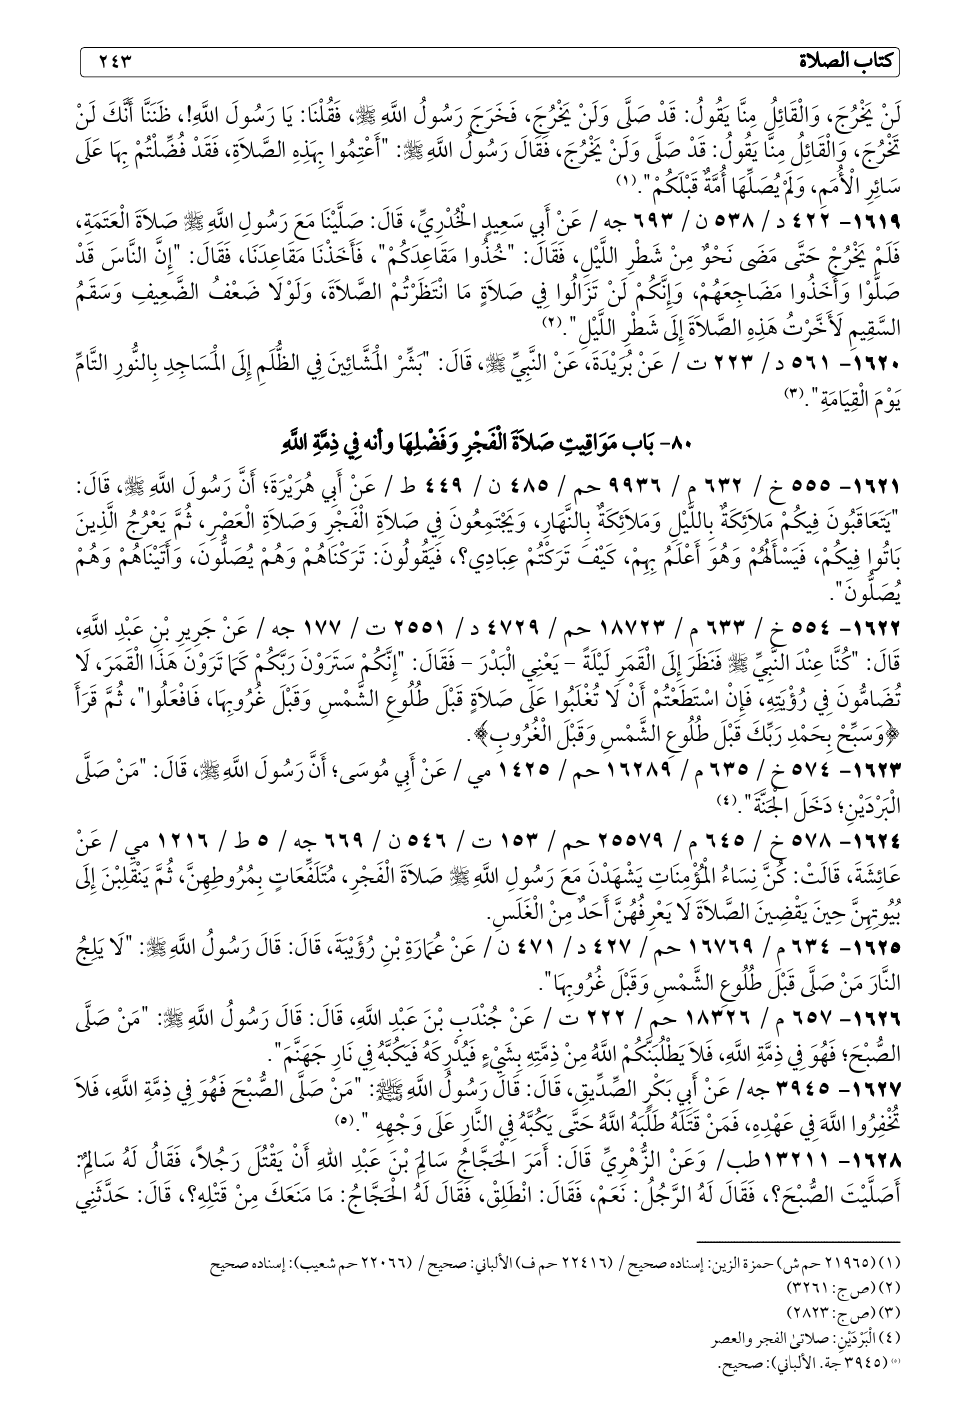 كتاب الصلاة ٢٤٣
لَنْ يَخْرُجَ، وَالْقَائِلُ مِنَّا يَقُولُ: قَدْ صَلَّى وَلَنْ يَخْرُجَ، فَخَرَجَ رَسُولُ اللَّهِ ﷺ، فَقُلْنَا: يَا رَسُولَ اللَّهِ!، ظَنَنَّا أَنَّكَ لَنْ
تَخْرُجَ، وَالْقَائِلُ مِنَّا يَقُولُ: قَدْ صَلَّى وَلَنْ يَخْرُجَ، فَقَالَ رَسُولُ اللَّهِ ﷺ: "أَعْتِمُوا بِهَذِهِ الصَّلاَةِ، فَقَدْ فُضِّلْتُمْ بِهَا عَلَى
سَائِرِ الْأُمَمِ، وَلَمْ يُصَلِّهَا أُمَّةٌ قَبْلَكُمْ".(١)
١٦١٩- ٤٢٢ د/ ٥٣٨ ن/ ٦٩٣ جه/ عَنْ أَبِي سَعِيدٍ الْخُدْرِيِّ، قَالَ: صَلَّيْنَا مَعَ رَسُولِ اللَّهِ ﷺ صَلاَةَ الْعَتَمَةِ،
فَلَمْ يَخْرُجْ حَتَّى مَضَى نَحْوٌ مِنْ شَطْرِ اللَّيْلِ، فَقَالَ: "خُذُوا مَقَاعِدَكُمْ"، فَأَخَذْنَا مَقَاعِدَنَا، فَقَالَ: "إِنَّ النَّاسَ قَدْ
صَلَّوْا وَأَخَذُوا مَضَاجِعَهُمْ، وَإِنَّكُمْ لَنْ تَزَالُوا فِي صَلاَةٍ مَا انْتَظَرْتُمْ الصَّلاَةَ، وَلَوْلَا ضَعْفُ الضَّعِيفِ وَسَقَمُ
السَّقِيمِ لَأَخَّرْتُ هَذِهِ الصَّلاَةَ إِلَى شَطْرِ اللَّيْلِ".(٢)
١٦٢٠- ٥٦١ د/ ٢٢٣ ت/ عَنْ بُرَيْدَةَ، عَنْ النَّبِيِّ ﷺ، قَالَ: "بَشِّرْ الْمَشَّائِينَ فِي الظُّلَمِ إِلَى الْمَسَاجِدِ بِالنُّورِ التَّامِّ
يَوْمَ الْقِيَامَةِ".(٣)
٨٠- بَاب مَوَاقِيتِ صَلاَةَ الْفَجْرِ وَفَضْلِهَا وأنه فِي ذِمَّةِ اللَّهِ
١٦٢١- ٥٥٥ خ/ ٦٣٢ م/ ٩٩٣٦ حم/ ٤٨٥ ن/ ٤٤٩ ط/ عَنْ أَبِي هُرَيْرَةَ؛ أَنَّ رَسُولَ اللَّهِ ﷺ، قَالَ:
"يَتَعَاقَبُونَ فِيكُمْ مَلاَئِكَةٌ بِاللَّيْلِ وَمَلاَئِكَةٌ بِالنَّهَارِ، وَيَجْتَمِعُونَ فِي صَلاَةِ الْفَجْرِ وَصَلاَةِ الْعَصْرِ، ثُمَّ يَعْرُجُ الَّذِينَ
بَاتُوا فِيكُمْ، فَيَسْأَلُهُمْ وَهُوَ أَعْلَمُ بِهِمْ، كَيْفَ تَرَكْتُمْ عِبَادِي؟، فَيَقُولُونَ: تَرَكْنَاهُمْ وَهُمْ يُصَلُّونَ، وَأَتَيْنَاهُمْ وَهُمْ
يُصَلُّونَ".
١٦٢٢- ٥٥٤ خ/ ٦٣٣ م/ ١٨٧٢٣ حم/ ٤٧٢٩ د/ ٢٥٥١ ت/ ١٧٧ جه/ عَنْ جَرِيرِ بْنِ عَبْدِ اللَّهِ،
قَالَ: "كُنَّا عِنْدَ النَّبِيِّ ﷺ فَنَظَرَ إِلَى الْقَمَرِ لَيْلَةً – يَعْنِي الْبَدْرَ – فَقَالَ: "إِنَّكُمْ سَتَرَوْنَ رَبَّكُمْ كَمَا تَرَوْنَ هَذَا الْقَمَرَ، لَا
تُضَامُّونَ فِي رُؤْيَتِهِ، فَإِنْ اسْتَطَعْتُمْ أَنْ لَا تُغْلَبُوا عَلَى صَلاَةٍ قَبْلَ طُلُوعِ الشَّمْسِ وَقَبْلَ غُرُوبِهَا، فَافْعَلُوا"، ثُمَّ قَرَأَ
﴿وَسَبِّحْ بِحَمْدِ رَبِّكَ قَبْلَ طُلُوعِ الشَّمْسِ وَقَبْلَ الْغُرُوبِ﴾.
١٦٢٣- ٥٧٤ خ/ ٦٣٥ م/ ١٦٢٨٩ حم/ ١٤٢٥ مي/ عَنْ أَبِي مُوسَى؛ أَنَّ رَسُولَ اللَّهِ ﷺ، قَالَ: "مَنْ صَلَّى
الْبَرْدَيْنِ؛ دَخَلَ الْجَنَّةَ".(٤)
١٦٢٤- ٥٧٨ خ/ ٦٤٥ م/ ٢٥٥٧٩ حم/ ١٥٣ ت/ ٥٤٦ ن/ ٦٦٩ جه/ ٥ ط/ ١٢١٦ مي/ عَنْ
عَائِشَةَ، قَالَتْ: كُنَّ نِسَاءُ الْمُؤْمِنَاتِ يَشْهَدْنَ مَعَ رَسُولِ اللَّهِ ﷺ صَلاَةَ الْفَجْرِ، مُتَلَفِّعَاتٍ بِمُرُوطِهِنَّ، ثُمَّ يَنْقَلِبْنَ إِلَى
بُيُوتِهِنَّ حِينَ يَقْضِينَ الصَّلاَةَ لَا يَعْرِفُهُنَّ أَحَدٌ مِنْ الْغَلَسِ.
١٦٢٥- ٦٣٤ م/ ١٦٧٦٩ حم/ ٤٢٧ د/ ٤٧١ ن/ عَنْ عُمَارَةِ بْنِ رُؤَيْبَةَ، قَالَ: قَالَ رَسُولُ اللَّهِ ﷺ: "لَا يَلِجُ
النَّارَ مَنْ صَلَّى قَبْلَ طُلُوعِ الشَّمْسِ وَقَبْلَ غُرُوبِهَا".
١٦٢٦- ٦٥٧ م/ ١٨٣٢٦ حم/ ٢٢٢ ت/ عَنْ جُنْدَبِ بْنَ عَبْدِ اللَّهِ، قَالَ: قَالَ رَسُولُ اللَّهِ ﷺ: "مَنْ صَلَّى
الصُّبْحَ؛ فَهُوَ فِي ذِمَّةِ اللَّهِ، فَلاَ يَطْلُبَنَّكُمْ اللَّهُ مِنْ ذِمَّتِهِ بِشَيْءٍ فَيُدْرِكَهُ فَيَكُبَّهُ فِي نَارِ جَهَنَّمَ".
١٦٢٧- ٣٩٤٥ جه/ عَنْ أَبِي بَكْرٍ الصِّدِّيقِ، قَالَ: قَالَ رَسُولُ اللَّهِ ﷺ: "مَنْ صَلَّى الصُّبْحَ فَهُوَ فِي ذِمَّةِ اللَّهِ، فَلاَ
تُخْفِرُوا اللَّهَ فِي عَهْدِهِ، فَمَنْ قَتَلَهُ طَلَبَهُ اللَّهُ حَتَّى يَكُبَّهُ فِي النَّارِ عَلَى وَجْهِهِ ".(٥)
١٦٢٨- ١٣٢١١طب/ وَعَنْ الزُّهْرِيِّ قَالَ: أَمَرَ الْحَجَّاجُ سَالِمَ بْنَ عَبْدِ اللهِ أَنْ يَقْتُلَ رَجُلاً، فَقَالَ لَهُ سَالِمٌ:
أَصَلَّيْتَ الصُّبْحَ؟، فَقَالَ لَهُ الرَّجُلُ: نَعَمْ، فَقَالَ: انْطَلِقْ، فَقَالَ لَهُ الْحَجَّاجُ: مَا مَنَعَكَ مِنْ قَتْلِهِ؟، قَالَ: حَدَّثَنِي
(١) (٢١٩٦٥ حم ش) حمزة الزين: إسناده صحيح/ (٢٢٤١٦ حم ف) الألباني: صحيح/ (٢٢٠٦٦ حم شعيب): إسناده صحيح
(٢) (ص ج: ٣٢٦١)
(٣) (ص ج: ٢٨٢٣)
(٤) الْبَرْدَيْنِ: صلاتىٰ الفجر والعصر
(٥) (٣٩٤٥ جة. الألباني): صحيح.